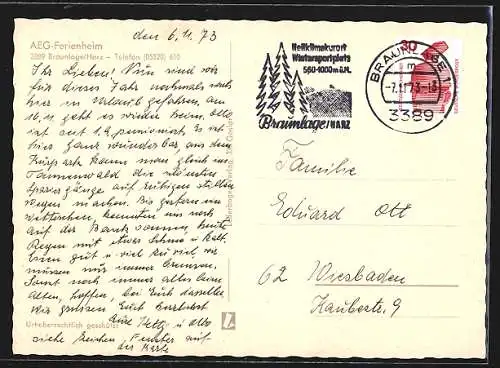 den 6.11.73
AEG-Ferienheim
3389 Braunlage/Harz - Telefon (05520) 610
Ihr Lieben! Nun sind wir
für dieses Jahr nochmals nach
hier in Urlaub gefahren, am
16.11. geht es wieder heim. Otto
ist seit 1.9. pensioniert. Es ist
hier ganz wunderbar, aus dem
Kurpark kann man gleich im
Tannenwald die schönsten
Spaziergänge auf ruhigen stillen
Wegen machen. Bis gestern im
Wetterchen, konnten uns noch
auf der Bank sonnen, heute
Regen mit etwas Schnee u. kalt.
Essen gut u. viel zu viel, wir
müssen nur immer bremsen.
Sonst noch immer alles beim
Alten, hoffen, bei Euch dasselbe
Wir grüssen Euch herzlichst
Eure Hetty u. Otto
siehe Zeichen, Fenster auf
der Karte
Urheberrechtlich geschützt
Heilklimakurort
Wintersportplatz
560-1000m ü.M.
Braunlage/HARZ
BRAUNLAGE 1
m
-7.11.73-13
3389
30
Familie
Eduard Ott
62 Wiesbaden
Kaubestr. 9